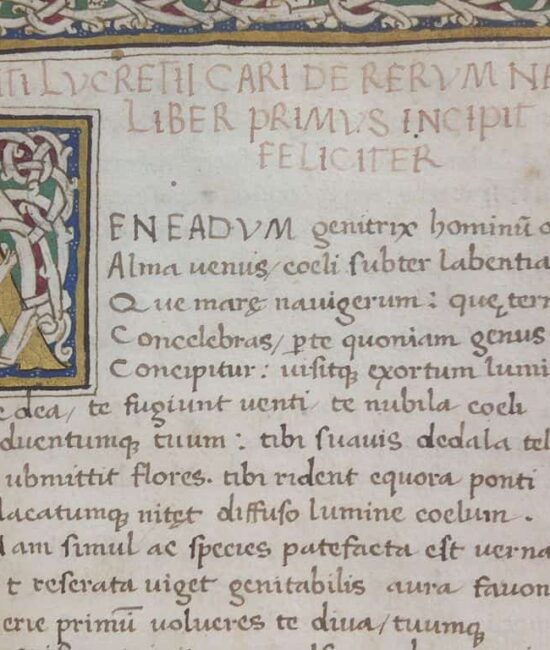 TI LVCRETII CARI DE RERVM NA
LIBER PRIMVS INCIPIT
FELICITER
ENEADVM genitrix hominū
Alma uenus/ coeli subter labentia
Que marę nauigerum: quę terr
Concelebras/ ꝑte quoniam genus
Concipitur: uisitqꝫ exortum lumi
e dea/ te fugiunt uenti te nubila coeli
duentumqꝫ tuum: tibi suauis dedala tel
ubmittit flores. tibi rident equora ponti
lacatumqꝫ nitęt diffuso lumine coelum.
Nam simul ac species patefacta est uerna
t reserata uiget genitabilis aura fauon
erie primū uolucres te diua/ tuumqꝫ